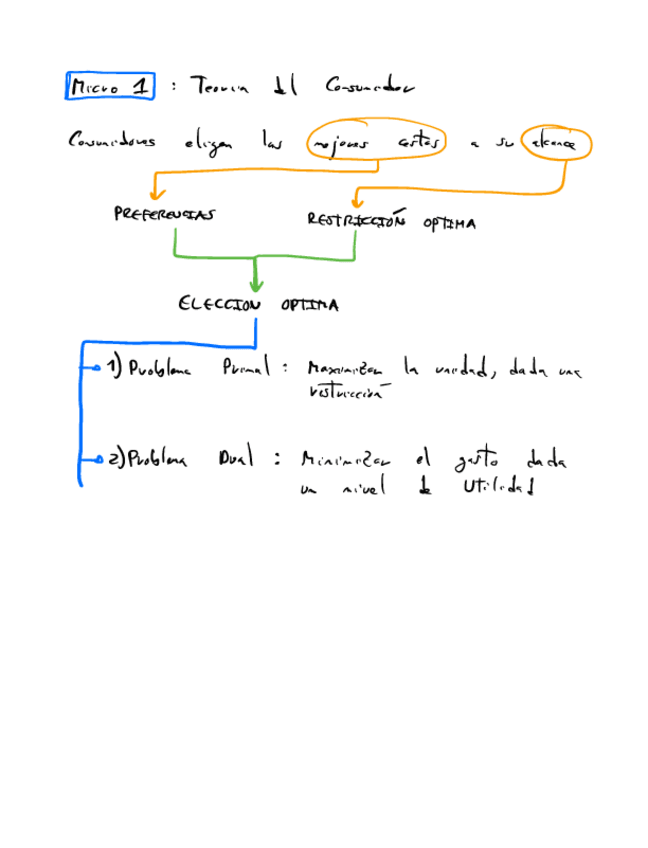 Micro 1 : Teoria del Consumidor
Consumidores eligen las mejores cestas a su alcance
PREFERENCIAS
RESTRICCIÓN OPTIMA
ELECCION OPTIMA
1) Problema Primal : Maximizar la , dada una
restricción
2) Problema Dual : Minimizar el gasto dada
un nivel de Utilidad